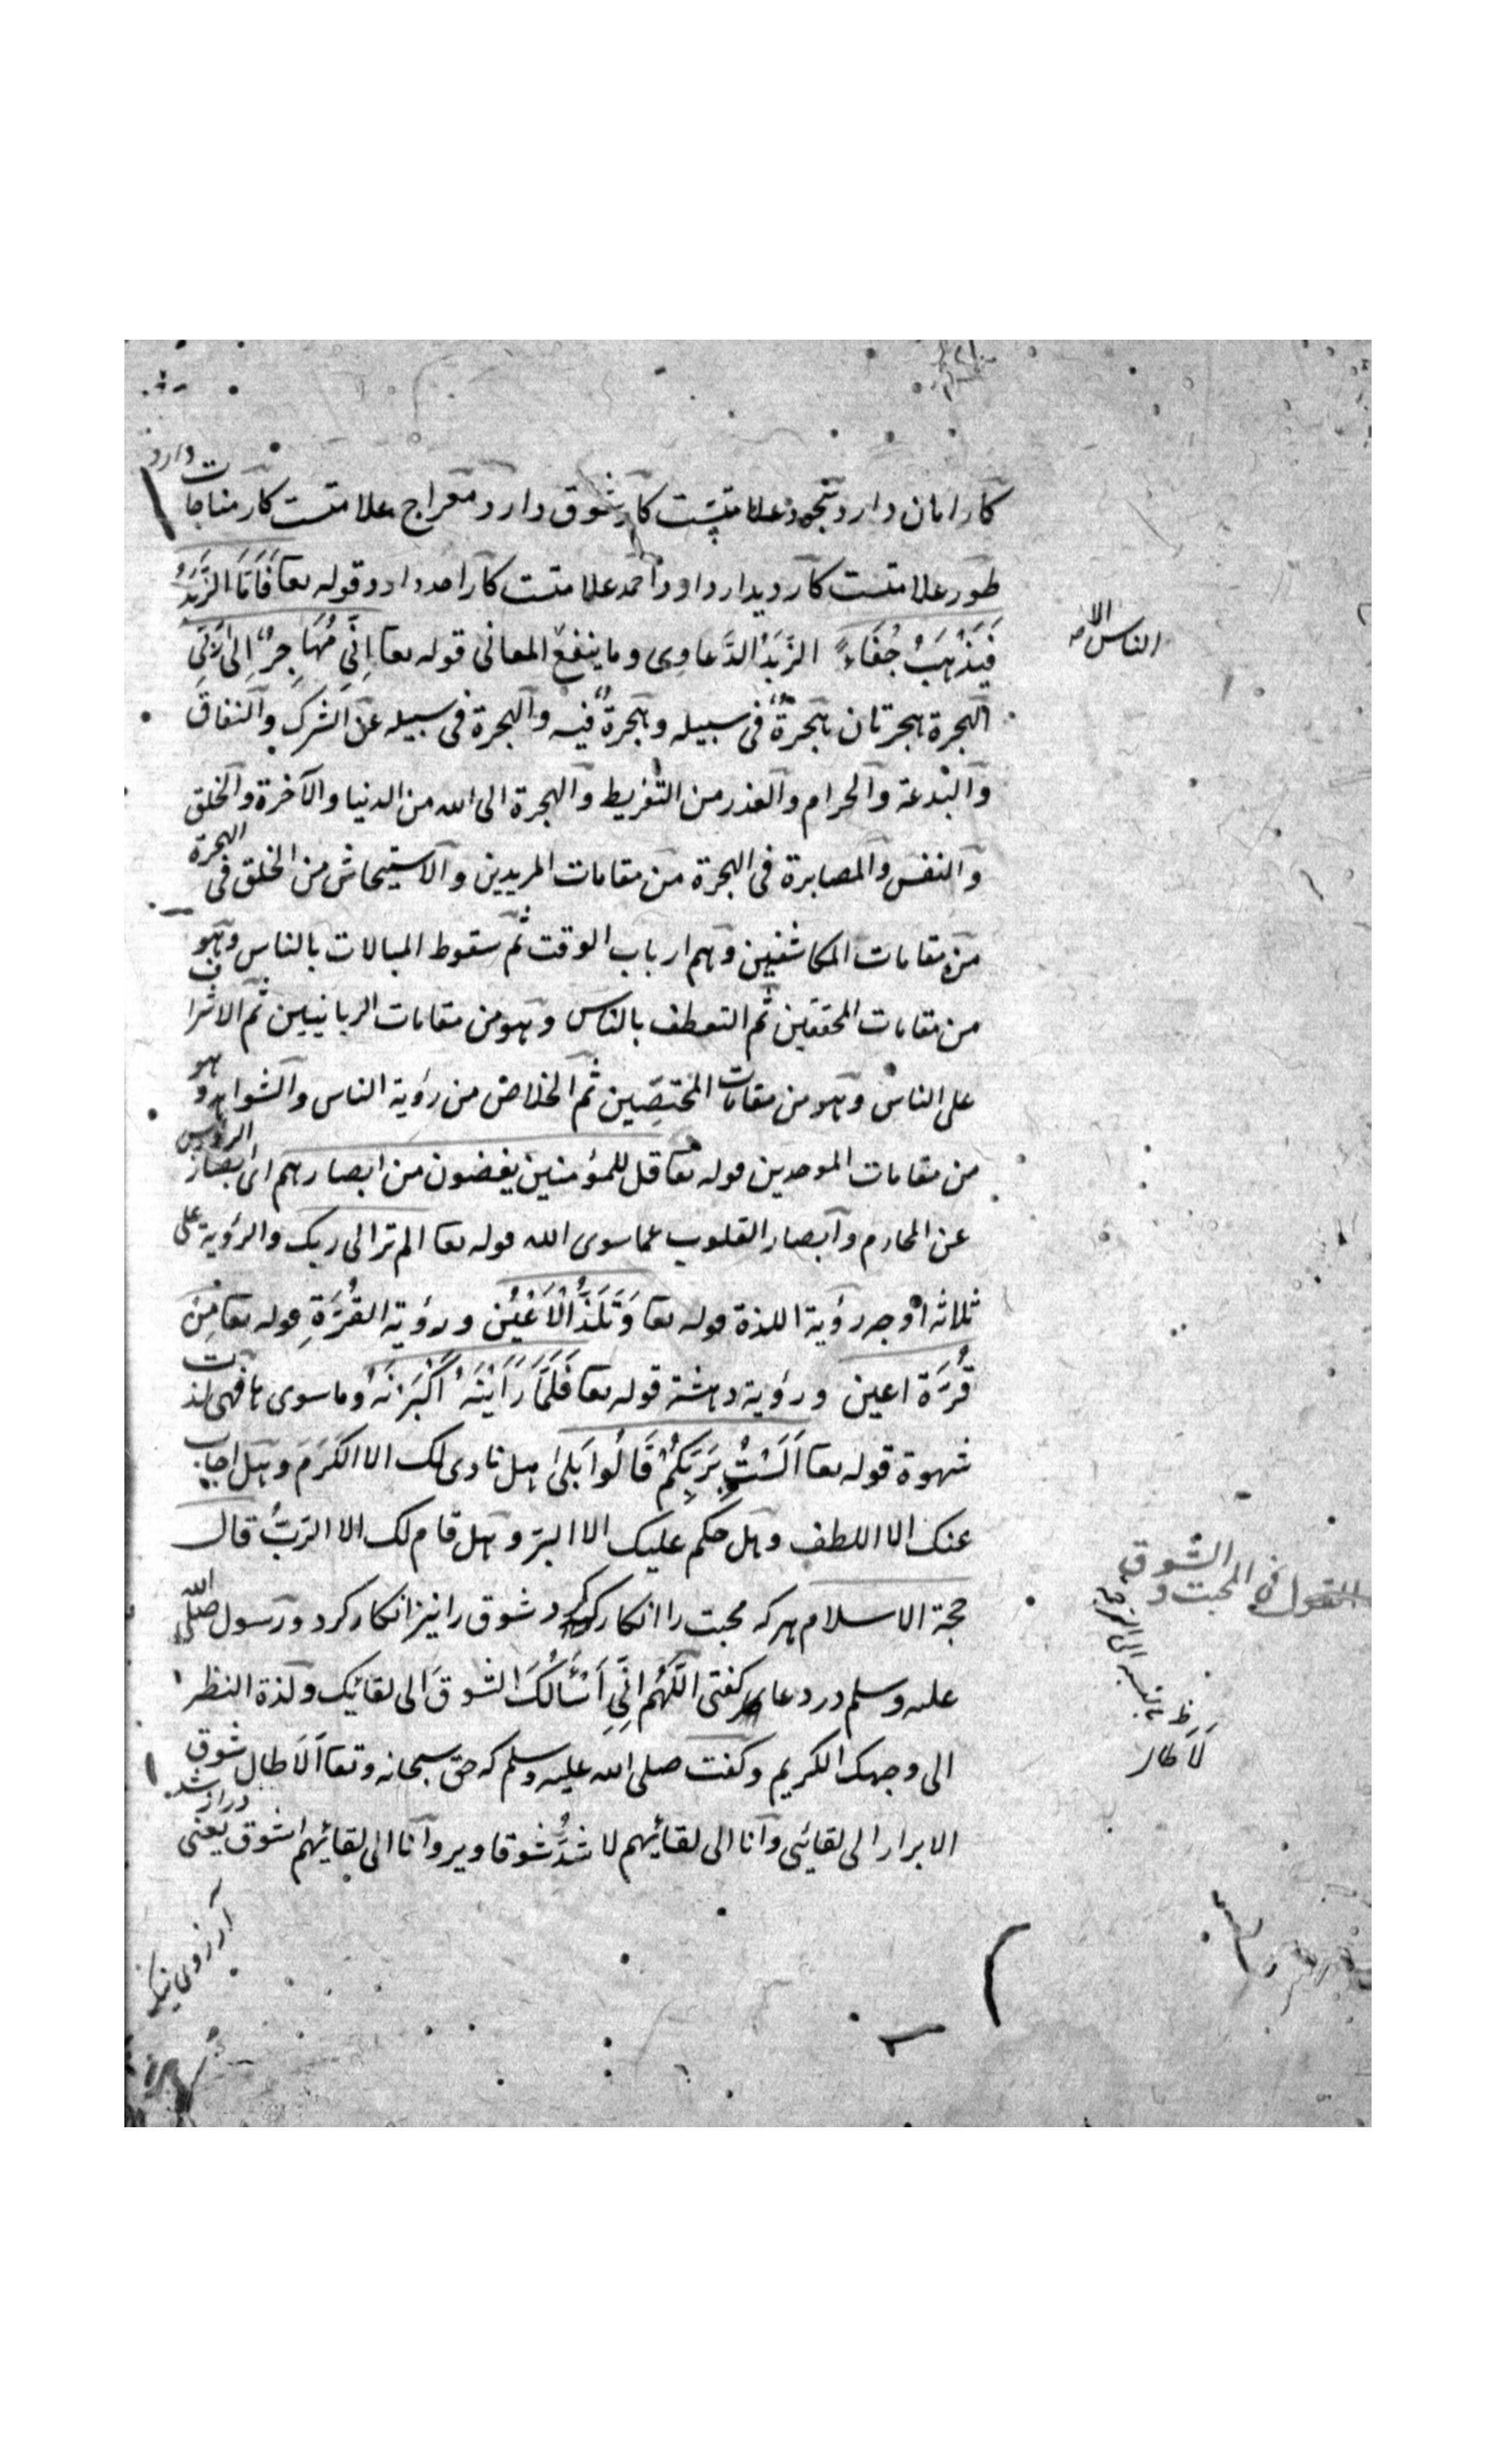 کار امان دارد تهجد علامتست کار شوق دارد معراج علامتست کار مناجات دارد
طور علامتست کار دیدار دارد احمد علامتست کار احد دارد قوله تعا فَاَمَّا الزَّبَدُ
فَیَذْهَبُ جُفَاءً الزَّبَدُ الدَّعاوی وما ینفع المعانی قوله تعا اِنِّی مُهَاجِرٌ اِلیٰ رَبِّی
الهجرة هجرتان هجرةٌ فی سبیله وهجرةٌ فیه والهجرة فی سبیله عن الشرک والنفاق
والبدعة والحرام والعذر من التفریط والهجرة الی الله من الدنیا والآخرة والخلق
والنفس والمصابرة فی الهجرة من مقامات المریدین والاستیحاش من الخلق فی الهجرة
من مقامات المکاشفین وهم ارباب الوقت ثم سقوط المبالات بالناس وهو
من مقامات المحققین ثم التعطف بالناس وهو من مقامات الربانیین ثم الاشراف
علی الناس وهو من مقامات المختصّین ثم الخلاص من رؤیة الناس والشواهد وهو
من مقامات الموحدین قوله تعا قل للمؤمنین یغضون من ابصارهم ای ابصار الرؤس
عن المحارم وابصار القلوب عما سوی الله قوله تعا الم تر الی ربک والرؤیة علی
ثلاثه اوجه رؤیة اللذة قوله تعا وَتَلَذُّ الْاَعْیُن ورؤیة القُرَّةِ قوله تعا مِنْ
قُرَّة اعین ورؤیة دهشة قوله تعا فَلَمَّا رَاَیْنَهُ اَکْبَرْنَهُ وما سوی ها فهی لذت
شهوة قوله تعا اَلَسْتُ بِرَبِّکُمْ قَالُوا بَلیٰ هل نادی لک الا الکَرَمَ وهل اجاب
عنک الا اللطف وهل حکم علیک الا البرّ وهل قام لک الا الربُّ قال
حجة الاسلام هرکه محبت را انکار کرد شوق را نیز انکار کرد ورسول صلی الله
علیه وسلم در دعا گفتی اللّٰهُم اِنّی اَسْأَلُکَ الشوقَ الی لقائک ولذة النظر
الی وجهک الکریم وگفت صلی الله علیه وسلم که حق سبحانه وتعا اَلَا طال شوق
الابرار الی لقائی وانا الی لقائهم لاشدُّ شوقا ویروا انا الی لقائهم اشوق یعنی دراز شد
آرزوی نیک
الناس الا
القول فی المحبت والشوق
اَلَا طال